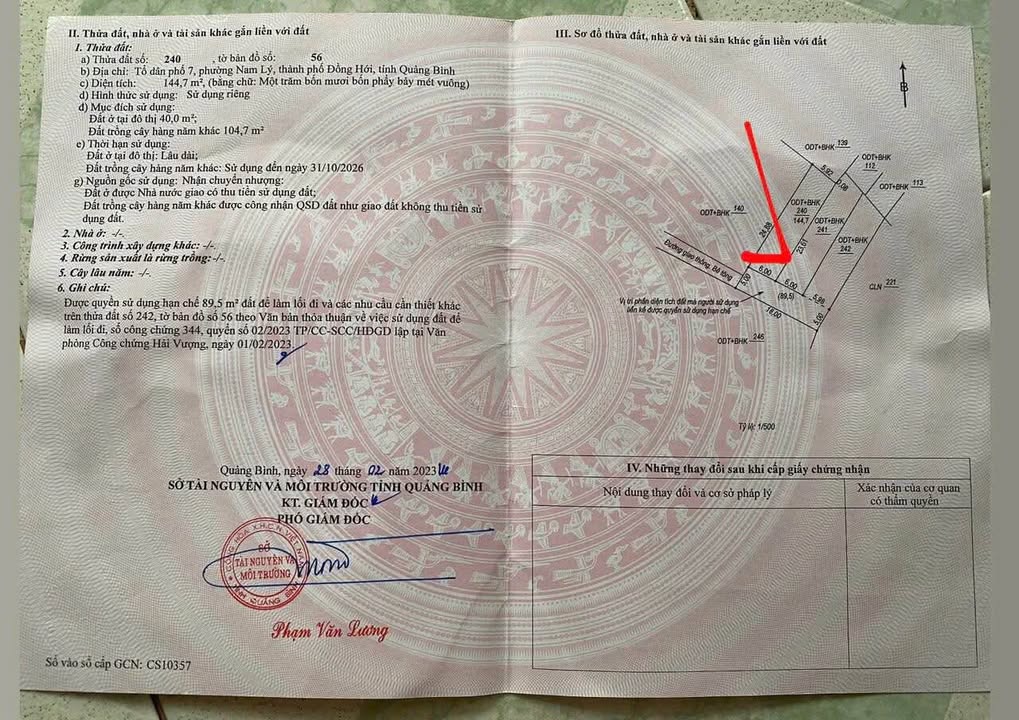 II. Thửa đất, nhà ở và tài sản khác gắn liền với đất
1. Thửa đất:
a) Thửa đất số: 240 , tờ bản đồ số: 56
b) Địa chỉ: Tổ dân phố 7, phường Nam Lý, thành phố Đồng Hới, tỉnh Quảng Bình
c) Diện tích: 144,7 m², (bằng chữ: Một trăm bốn mươi bốn phẩy bảy mét vuông)
d) Hình thức sử dụng: Sử dụng riêng
đ) Mục đích sử dụng:
Đất ở tại đô thị 40,0 m²;
Đất trồng cây hàng năm khác 104,7 m²
e) Thời hạn sử dụng:
Đất ở tại đô thị: Lâu dài;
Đất trồng cây hàng năm khác: Sử dụng đến ngày 31/10/2026
g) Nguồn gốc sử dụng: Nhận chuyển nhượng:
Đất ở được Nhà nước giao có thu tiền sử dụng đất;
Đất trồng cây hàng năm khác được công nhận QSD đất như giao đất không thu tiền sử
dụng đất.
2. Nhà ở: -/-.
3. Công trình xây dựng khác: -/-.
4. Rừng sản xuất là rừng trồng: -/-.
5. Cây lâu năm: -/-.
6. Ghi chú:
Được quyền sử dụng hạn chế 89,5 m² đất để làm lối đi và các nhu cầu cần thiết khác
trên thửa đất số 242, tờ bản đồ số 56 theo Văn bản thỏa thuận về việc sử dụng đất để
làm lối đi, số công chứng 344, quyển số 02/2023 TP/CC-SCC/HĐGD lập tại Văn
phòng Công chứng Hải Vượng, ngày 01/02/2023.
Quảng Bình, ngày 28 tháng 02 năm 2023
SỞ TÀI NGUYÊN VÀ MÔI TRƯỜNG TỈNH QUẢNG BÌNH
KT. GIÁM ĐỐC
PHÓ GIÁM ĐỐC
CỘNG HÒA X.H.C.N VIỆT NAM
SỞ
TÀI NGUYÊN VÀ
MÔI TRƯỜNG
TỈNH QUẢNG BÌNH
Phạm Văn Lương
Số vào sổ cấp GCN: CS10357
III. Sơ đồ thửa đất, nhà ở và tài sản khác gắn liền với đất
B
ODT+BHK 139
ODT+BHK 112
ODT+BHK 113
5,92
6,08
ODT+BHK 140
ODT+BHK
240
144,7
ODT+BHK
241
ODT+BHK
242
24,88
23,61
Đường giao thông, Bê tông
6,00
6,00
(89,5)
5,98
5,00
5,00
18,00
CLN 221
Vị trí phần diện tích đất mà người sử dụng
liền kề được quyền sử dụng hạn chế
ODT+BHK 246
Tỷ lệ: 1/500
IV. Những thay đổi sau khi cấp giấy chứng nhận
Nội dung thay đổi và cơ sở pháp lý
Xác nhận của cơ quan
có thẩm quyền